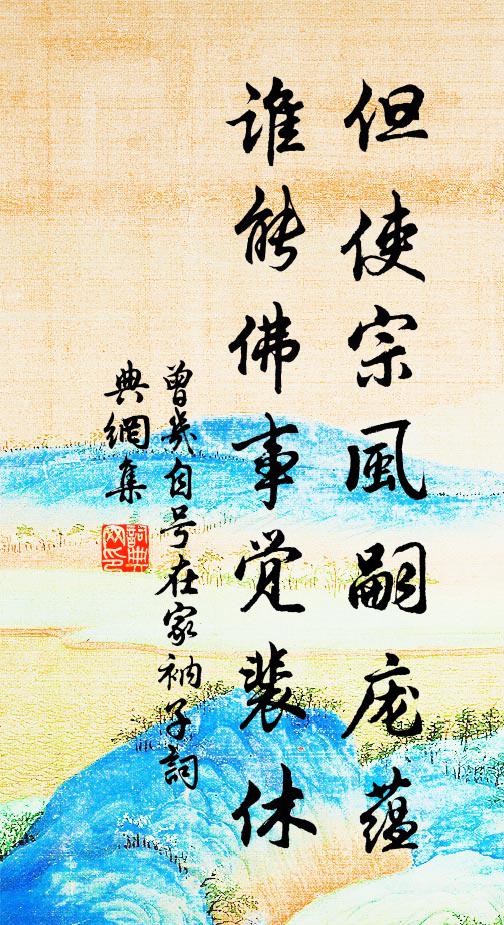 但使宗風嗣庞蕴
谁能佛事觉裴休
曾幾自号在家衲子詞
典網集
詞典網印